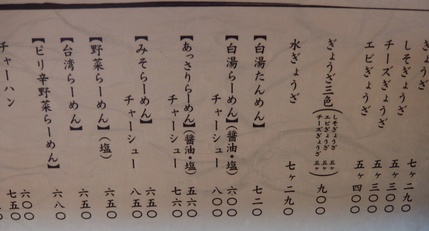 ぎょうざ
しそぎょうざ 七ヶ二九〇
チーズぎょうざ 五ヶ三〇〇
エビぎょうざ 五ヶ四〇〇
ぎょうざ三色
しそぎょうざ 五ヶ
エビぎょうざ 五ヶ
チーズぎょうざ 五ヶ
九〇〇
水ぎょうざ 七ヶ二九〇
【白湯たんめん】 七二〇
【白湯らーめん】(醤油・塩) 六〇〇
チャーシュー 八〇〇
【あっさりらーめん】(醤油・塩) 五六〇
チャーシュー 七六〇
【みそらーめん】 六五〇
チャーシュー 八五〇
【野菜らーめん】(塩) 六五〇
【台湾らーめん】 六八〇
【ピリ辛野菜らーめん】 六〇〇
チャーハン 七五〇